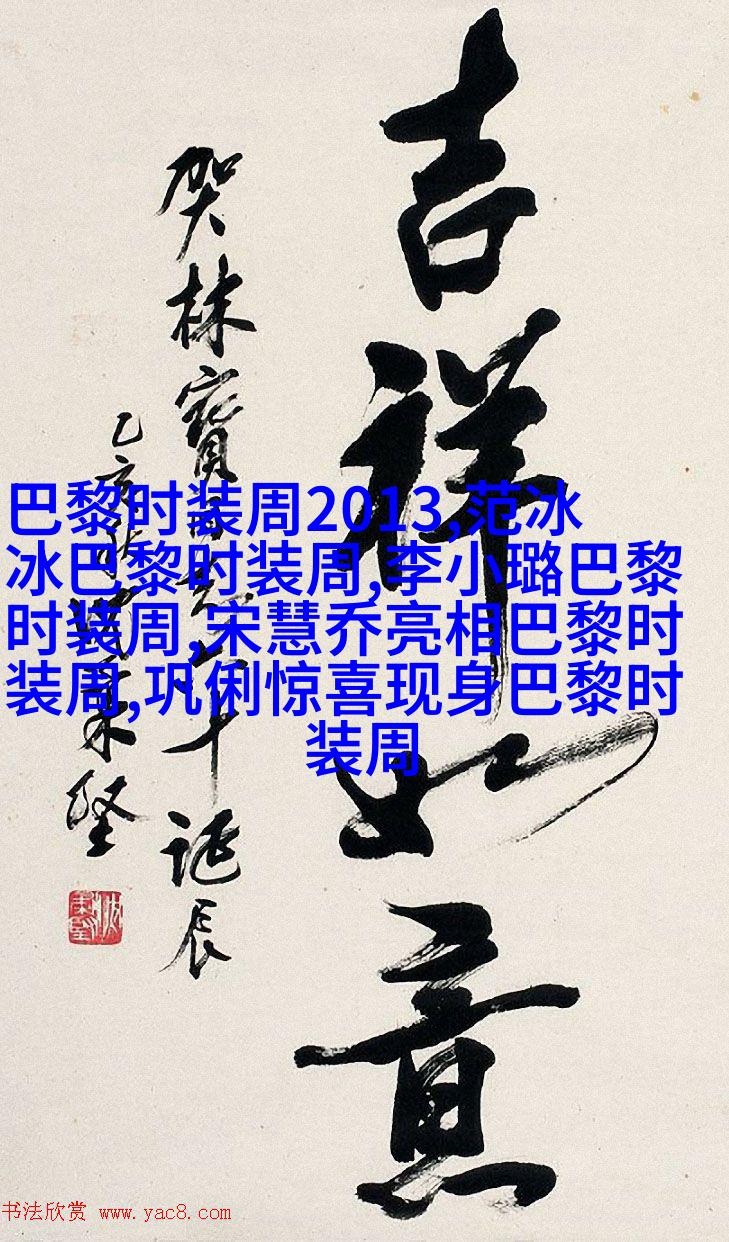 吉祥如意
贺林宝
诞辰
巴黎时装周2013,范冰
冰巴黎时装周,李小璐巴黎
时装周,宋慧乔亮相巴黎时
装周,巩俐惊喜现身巴黎时
装周
书法欣赏 www.yac8.com